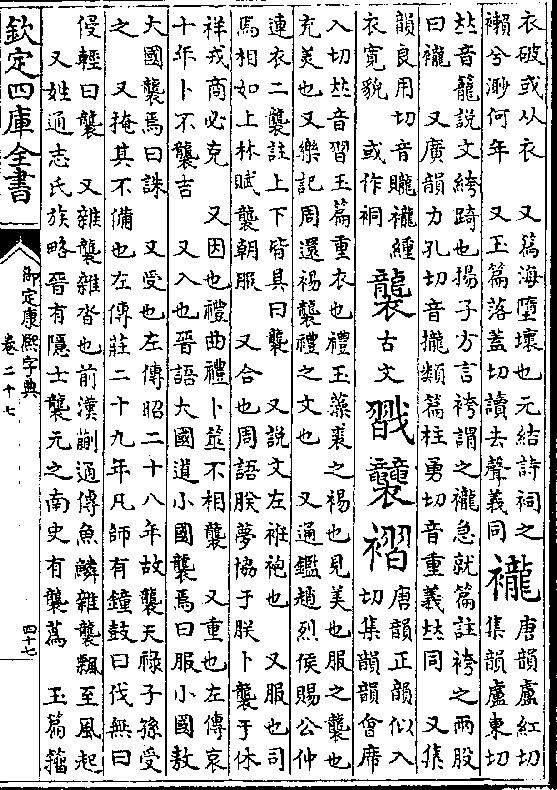 衣破或从衣　又篇海墮壞也元結詩祠之
襰兮渺何年　又玉篇落蓋切讀去聲義同　襱　唐韻盧紅切
集韻盧東切
𠀤音籠說文絝踦也揚子方言袴謂之襱急就篇註袴之兩股
曰襱　又廣韻力孔切音攏類篇柱勇切音重義𠀤同　又集
韻良用切音矓襱緟
衣寬貌　或作裥　襲　古文　戳　龖　褶　唐韻正韻似入
切集韻韻會席
入切𠀤音習玉篇重衣也禮玉藻裘之裼也見美也服之襲也
充美也又樂記周還裼襲禮之文也　又通鑑趙烈侯賜公仲
連衣二襲註上下皆具曰襲　又說文左袵袍也　又服也司
馬相如上林賦襲朝服　又合也周語朕夢協于朕卜襲于休
祥戎商必克　又因也禮曲禮卜筮不相襲　又重也左傳哀
十年卜不襲吉　又入也晉語大國道小國襲焉曰服小國敖
大國襲焉曰誅　又受也左傳昭二十八年故襲天祿子孫受
之　又掩其不備也左傳莊二十九年凡師有鐘鼓曰伐無曰
侵輕曰襲　又雜襲雜沓也前漢蒯通傳魚鱗雜襲飄至風起
又姓通志氏族略晉有隱士襲元之南史有襲蔿　玉篇籀
欽定四庫全書
御定康熙字典
卷二十七
四十七